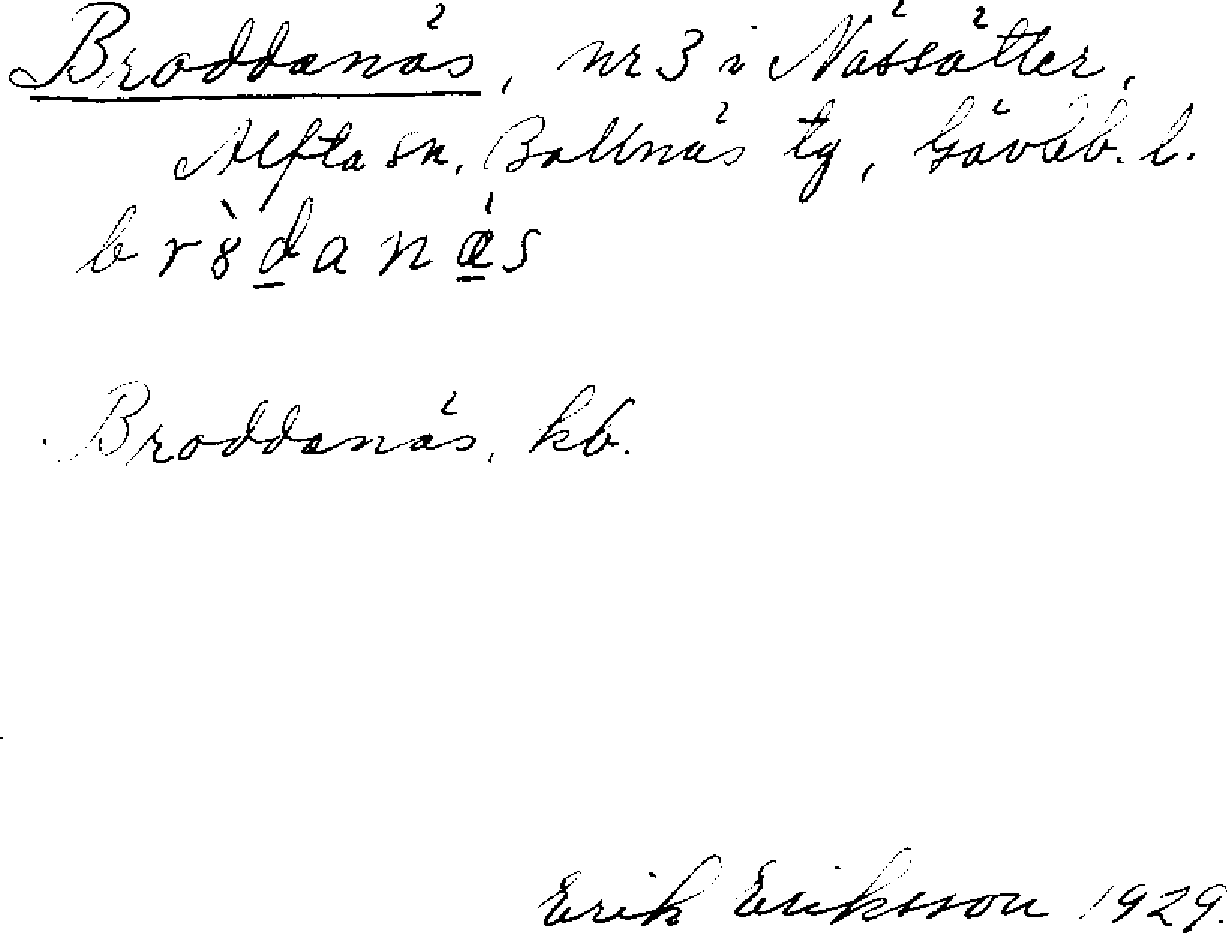 Broddanäs, nr 3 i Nässätter,
Alfta sn. Bollnäs tg, Gävleb. l.
br8̀d̲anǽ̲s
Broddanäs, kb.
Erik Eriksson 1929.